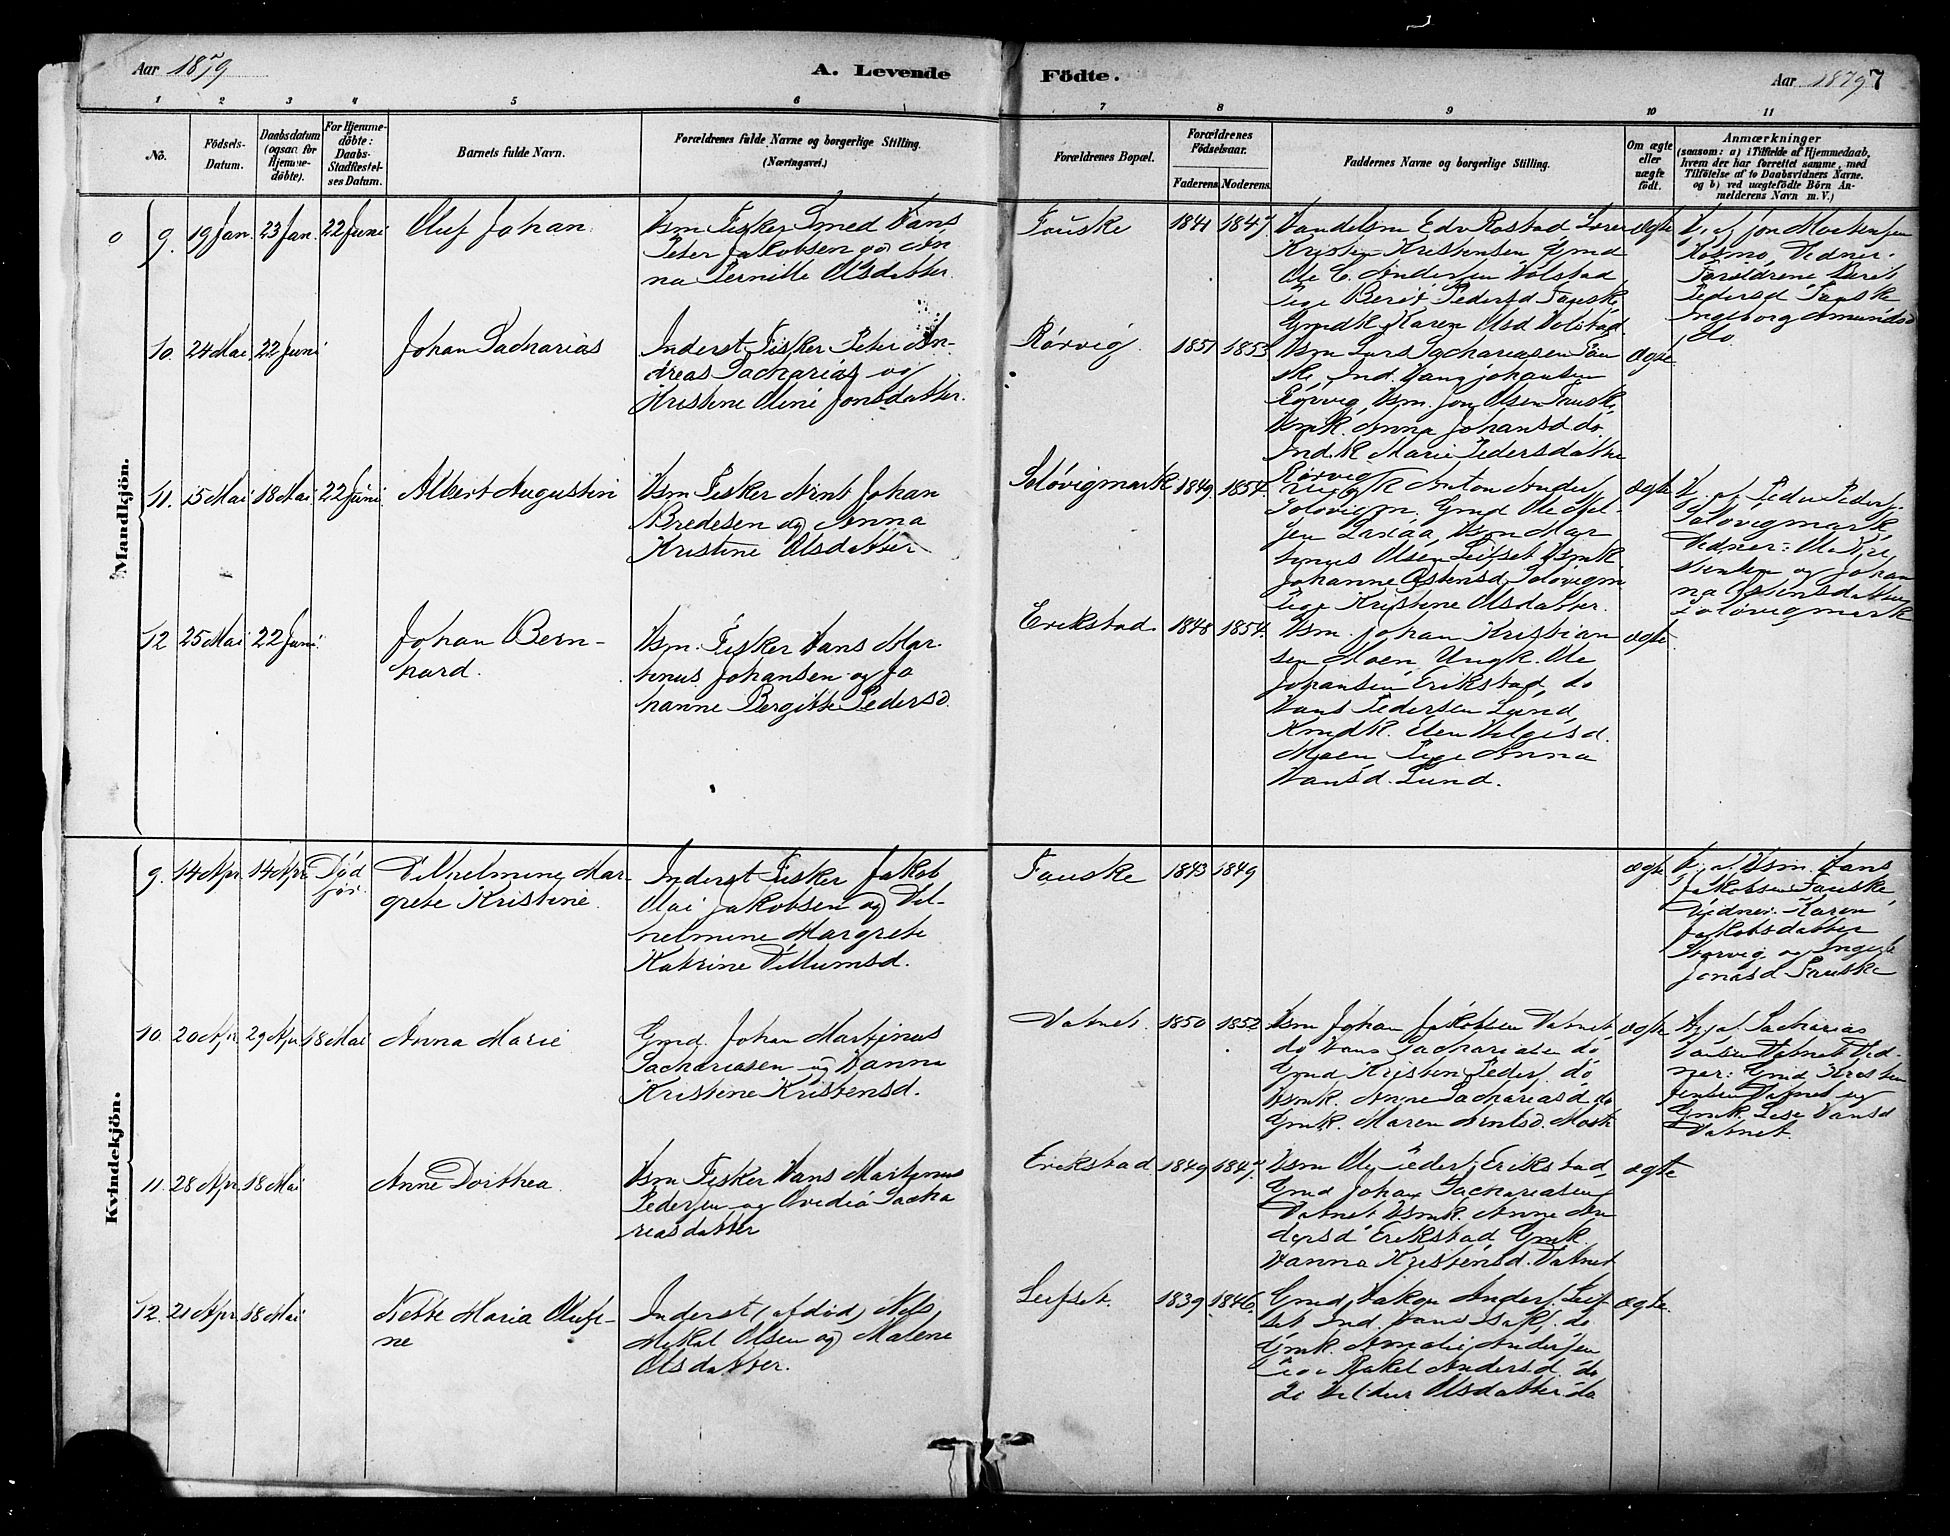 Aar 1879
A. Levende
Fødte.
Aar 1879 7
1 2 3 4 5 6 7 8 9 10 11
No.
Fødsels-Datum.
Daabsdatum (ogsaa for Hjemme-døbte).
For Hjemme-døbte: Daabs-Stadfæstel-ses Datum.
Barnets fulde Navn.
Forældrenes fulde Navne og borgerlige Stilling.
(Næringsvei.)
Forældrenes Bopæl.
Forældrenes Fødselsaar.
Faderens. Moderens.
Faddernes Navne og borgerlige Stilling.
Om ægte eller uægte født.
Anmærkninger
(saasom: a) i Tilfælde af Hjemmedaab,
hvem der har forrettet samme, med
Tilføielse af to Daabsvidners Navne.
og b) ved uægtefødte Børn An-
melderens Navn m. V.)
Mandkjön.
0 9. 19 Jan. 23 Jan. 22 Juni Oluf Johan
Hsm Fisker Hans
Peter Jakobsen og
na Pernille Olsdatter.
Fauske 1841 1847
Kristen Kristensen Gmd
Ole C. Andersen Holstad
Pige Berit Pedersd Fauske
Gmdk. Karen Olsd Holstad
ægte
Kosmo, Vidner.
Forældrene Berit
Pedersd Fauske
Ingeborg Amundsd
do.
10. 24 Mai 22 Juni Johan Sacharias
Inderst Fisker Peter An-
dreas Sacharias og
Kristine Oline Jonsdatter.
Rørvig 1851 1853
Hsm Lars Sachariasen Fau
ske, Ind. Hans Johansen
Rørvig, Hsm. Jon Olsen Fauske,
Hsmk. Anna Johansd do
Ind.k Marie Pedersdatter
Rørvig
ægte
11. 15 Mai 18 Mai 22 Juni Albert Augustin
Hsm Fisker Arnt Johan
Bredesen og Anna
Kristine Olsdatter
Soløvigmark 1849 1854.
Ungk Anton Ander
Soløvigm. Gmd Ole
tinus Olsen Leifset Hsmk
Johanne Østensd. Soløvigm
Pige Kristine Olsdatter.
ægte
H. af Peder Peders.
Soløvigmark
Vidner: Ole
og Johan
na Østensdatter
Soløvigmark
12 25 Mai 22 Juni Johan Bern-
hard.
Hsm. Fisker Hans Mar-
tinus Johansen og Jo
hanne Bergitte Pedersd.
Erikstad. 1848 1854.
Hsm. Johan Kristian
sen Moen Ungk. Ole
Johansen Erikstad, do
Hans Pedersen Lund,
Moen Pige Anna
Hansd. Lund.
ægte
Kvindekjön.
9. 14 Apr. 14 Apr. Død
før.
Vilhelmine Mar-
grete Kristine.
Inderst Fisker Jakob
Olai Jakobsen og Vil-
helmine Margrete
Katrine Villumsd.
Fauske 1843 1849
ægte
Hj. af Hsm. Hans
Jakobsen Fauske,
Vidner: Karen
Jakobsdatter
og
Jonasd Fauske
10. 20 Apr 29 Apr 18 Mai Anna Marie
Gmd. Johan Martinus
Sachariasen og Hanna
Kristine Kristensd.
Vatnet. 1850 1852
Hsm Johan Jakobsen Vatnet
do Hans Sachariasen do
Gmd Kristen Peders. do
Hsmk. Anne Sachariasd do
Gmk. Maren Arntsd. Mosti
ægte
Hj. af Sacharias
Hansen Vatnet Vid-
ner: Gmd Kristen
Jensen Vatnet og
Gmk. Lise Hansd
Vatnet.
11. 28 Apr 18 Mai Anne Dorthea
Hsm Fisker Hans Martinus
Pedersen og Ovedia Sacha
riasdatter
Erikstad. 1849 1847.
Hsm Ole Peders. Erikstad
Gmd Johan Sachariasen
Vatnet Hsmk. Anne An
dersd Erikstad, Gmk.
Hanna Kristensd. Vatnet
ægte
12. 21 Apr 18 Mai Nette Maria Olufi-
ne
Inderst (afdød) Nils
Mikal Olsen og Malene
Olsdatter.
Leifset. 1839 1846.
Gmd Anders. Leif
set Ind. Hans Isaks. do
Gmk. Amalie Andersen
Pige Rakel Andersd. do
Olsdatter do
ægte.